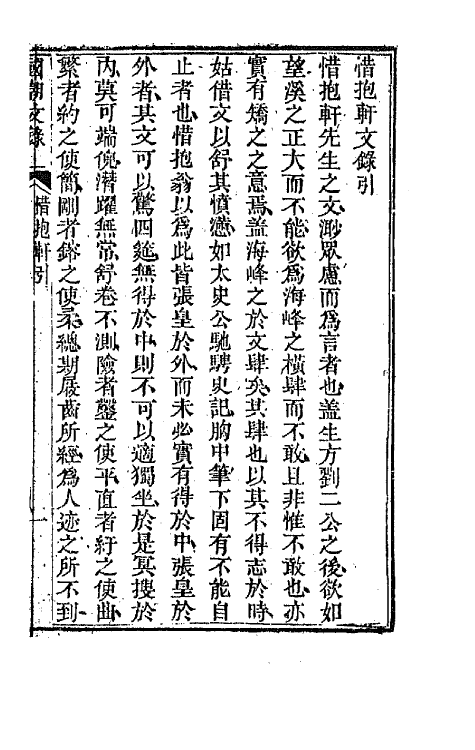 惜抱軒文錄引
惜抱軒先生之文渺眾慮而爲言者也蓋生方劉二公之後欲如
望溪之正大而不能欲爲海峰之橫肆而不敢且非惟不敢也亦
實有矯之之意焉蓋海峰之於文肆矣其肆也以其不得志於時
姑借文以舒其憤懣如太史公馳騁史記胸中筆下固有不能自
止者也惜抱翁以爲此皆張皇於外而未必實有得於中張皇於
外者其文可以驚四筵無得於中則不可以適獨坐於是冥搜於
內莫可端倪潛躍無常舒卷不測險者鑿之使平直者紆之使曲
繁者約之使簡剛者鎔之使柔總期屐齒所經爲人迹之所不到
國朝文錄
惜抱軒引
一